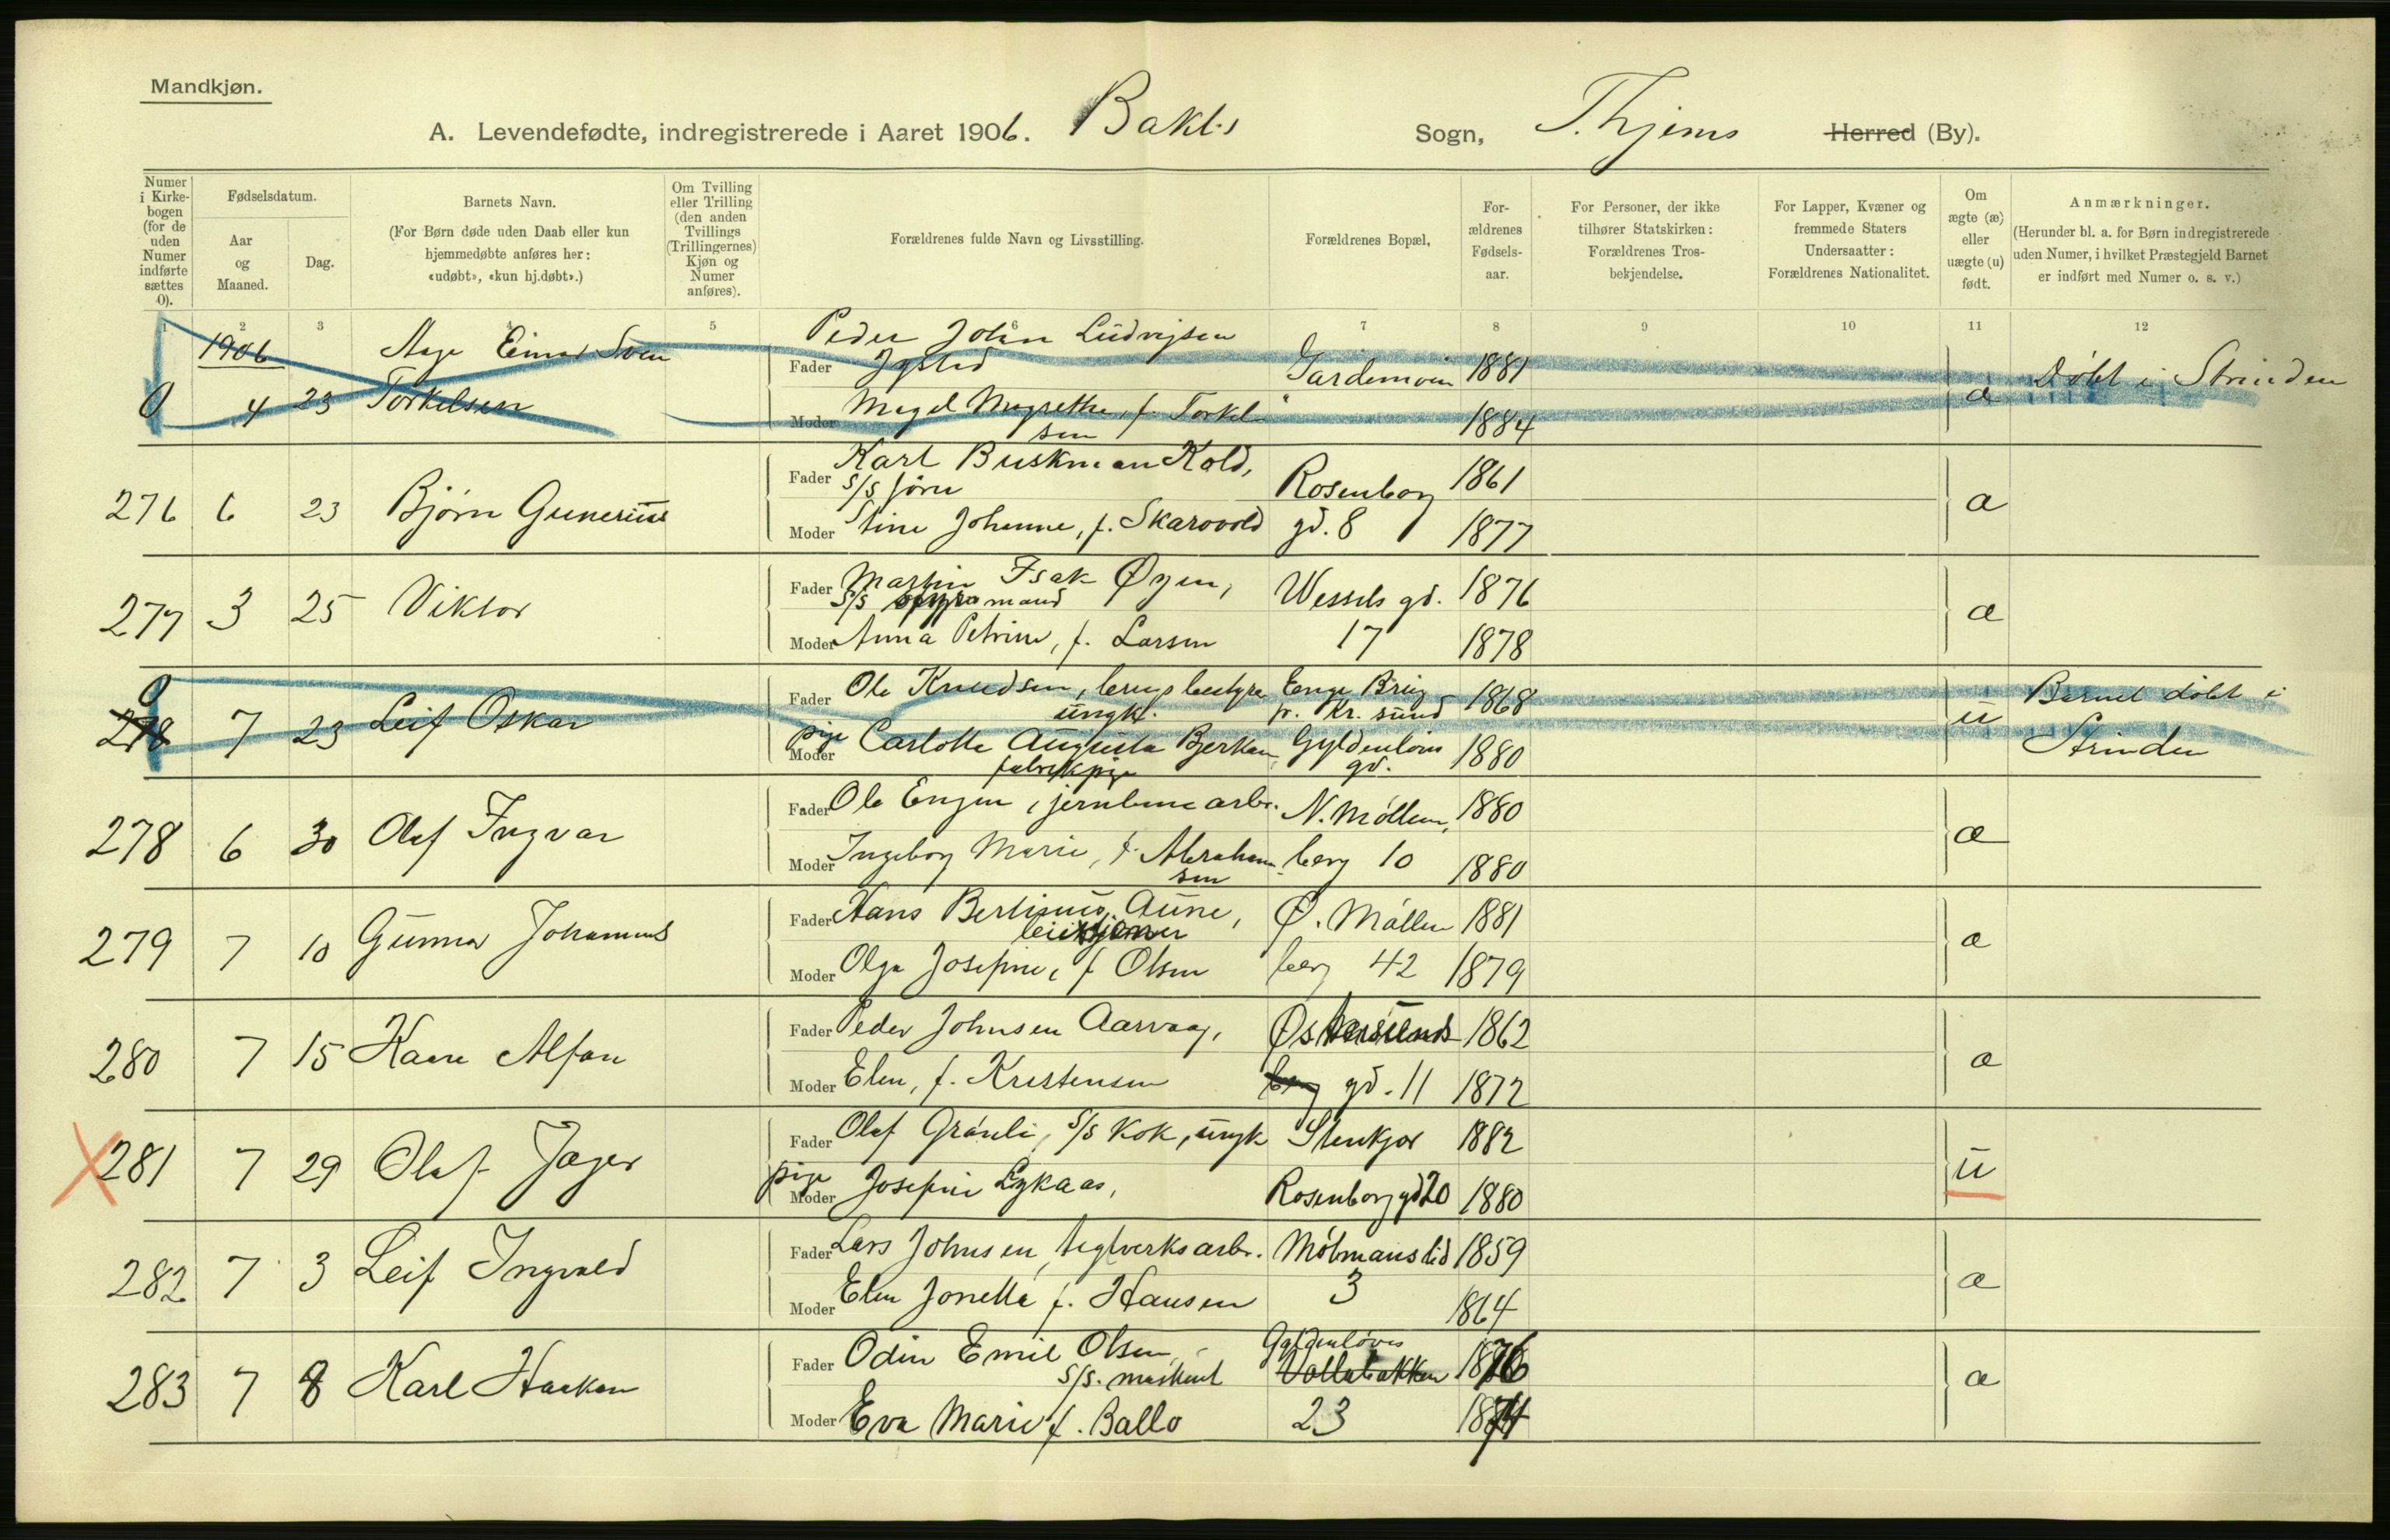 Mandkjøn.
A. Levendefødte, indregistrerede i Aaret 1906. Bakl.s Sogn, T.hjems Herred (By).
Numer i Kirkebogen (for de uden Numer indførte sættes 0).
Fødselsdatum.
Aar og Maaned.
Dag.
Barnets Navn.
(For Børn døde uden Daab eller kun hjemmedøbte anføres her: «udøbt», «kun hj.døbt».)
Om Tvilling eller Trilling (den anden Tvillings (Trillingernes) Kjøn og Numer anføres).
Forældrenes fulde Navn og Livsstilling.
Forældrenes Bopæl,
Forældrenes Fødselsaar.
For Personer, der ikke tilhører Statskirken: Forældrenes Trosbekjendelse.
For Lapper, Kvæner og fremmede Staters Undersaatter: Forældrenes Nationalitet.
Om ægte (æ) eller uægte (u) født.
Anmærkninger.
(Herunder bl. a. for Børn indregistrerede uden Numer, i hvilket Præstegjeld Barnet er indført med Numer o. s. v.)
1 2 3 4 5 6 7 8 9 10 11 12
1906 Aage Einar Sven Peder Johan Ludvigsen
Fader Gardemoen 1881 Døbt i Strinden
0 4 23 Torkelsen Moder Magrethe, f. Torkel- " 1884 æ
sen
Fader Karl Buskman Kold, 1861
276 6 23 Bjørn Gunerius S/S fører Rosenborg æ
Moder Stine Johanne, f. Skarovold gd. 8 1877
Fader Martin Isak Øyen, Wessels gd. 1876
277 3 25 Viktor S/S mand æ
Moder Anna Petrine, f. Larsen 17 1878
0 Fader Ole Knudsen, Enge Brug 1868 Barnet døbt i
278 7 23 Leif Oskar ungk. pr. Kr. sund u
pige Moder Carlotte Augusta Bjerkan, Gyldenløvs gd. 1880 Strinden
fabrikpige
Fader Ole Engen, jernbanearb. N. Møllen- 1880
278 6 30 Olaf Ingvar æ
Moder Ingeborg Marie, f. Abraham- berg 10 1880
sen
Fader Hans Bertinus Aune, Ø. Møllen 1881
279 7 10 Gunnar Johannes æ
Moder Olga Josefine, f Olsen berg 42 1879
Fader Peder Johnsen Aarvaag, Østersunds 1862
280 7 15 Kaare Alfon æ
Moder Elen, f. Kristensen berg gd. 11 1872
Fader Olaf Grønli, S/S Kok, ungk Stenkjær 1882
281 7 29 Olaf Jæger u
pige Moder Josefine Lykaas, Rosenborg gd 20 1880
Fader Lars Johnsen, teglverksarb. Møhmanslid 1859
282 7 3 Leif Ingvald æ
Moder Elen Jonette f. Hansen 3 1864
Fader Odin Emil Olsen, Gyldenløves 1876
283 7 8 Karl Haakon S/S. maskinist Vollabakken æ
Moder Eva Marie f. Ballo 23 1874